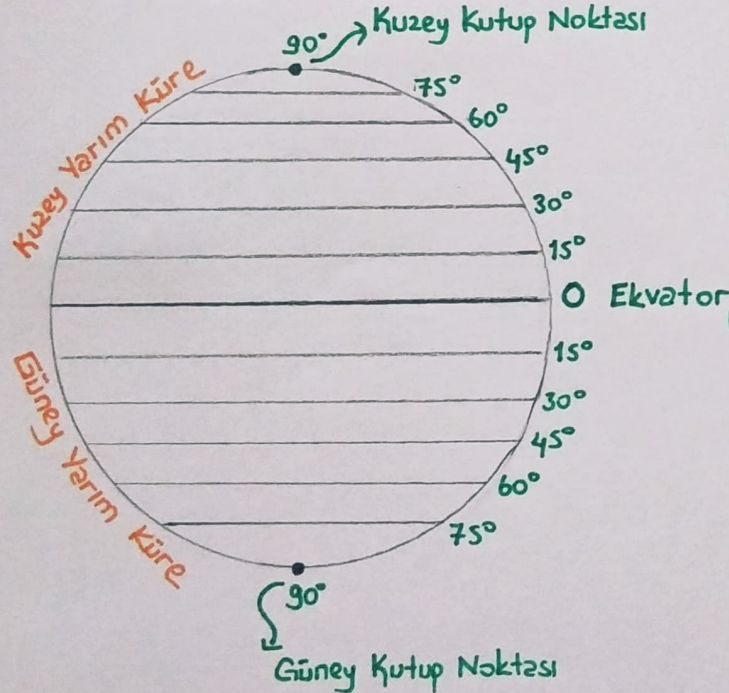 90° Kuzey Kutup Noktası
Kuzey Yarım Küre
75°
60°
45°
30°
15°
0 Ekvator
15°
30°
45°
60°
75°
Güney Yarım Küre
90°
Güney Kutup Noktası